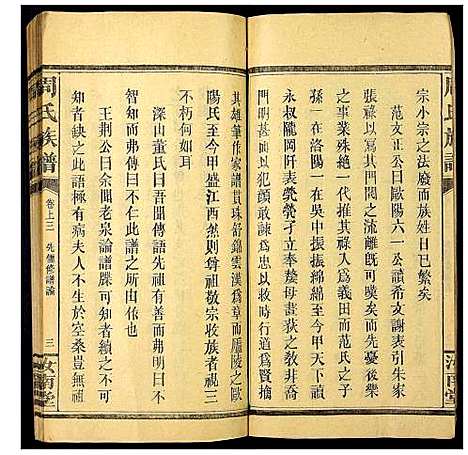 宗小宗之法廢而族姓日已繁矣
范文正公曰歐陽六一公讀希文謝表引朱家
張祿以寫其族之流離既可嘆矣而先憂後樂
之事業殊絶一代其推祿入為義田而范氏之子
孫一在洛陽一在吳中振振繩繩至今甲天下
永叔隴岡阡表煢煢孑立奉母以居敎非義方
門明甚迨以犯顏敢諫為忠以汲引後進為賢摛
其雄筆作家譜貫珠舒錦雲漢為章而廬陵之歐
陽氏至今甲盛江西然則尊祖敬宗收族者視三
不朽何如耳
深山董氏曰吾聞傳語先祖有善而弗明曰不
智知而弗傳曰不仁此譜之所由係也
王荆公曰余聞老泉論譜牒可知者續之不可
知者缺之此語極有病夫人不生於空桑豈無祖
周氏族譜
卷上三
先儒修譜論
三
汝南堂
周氏族譜